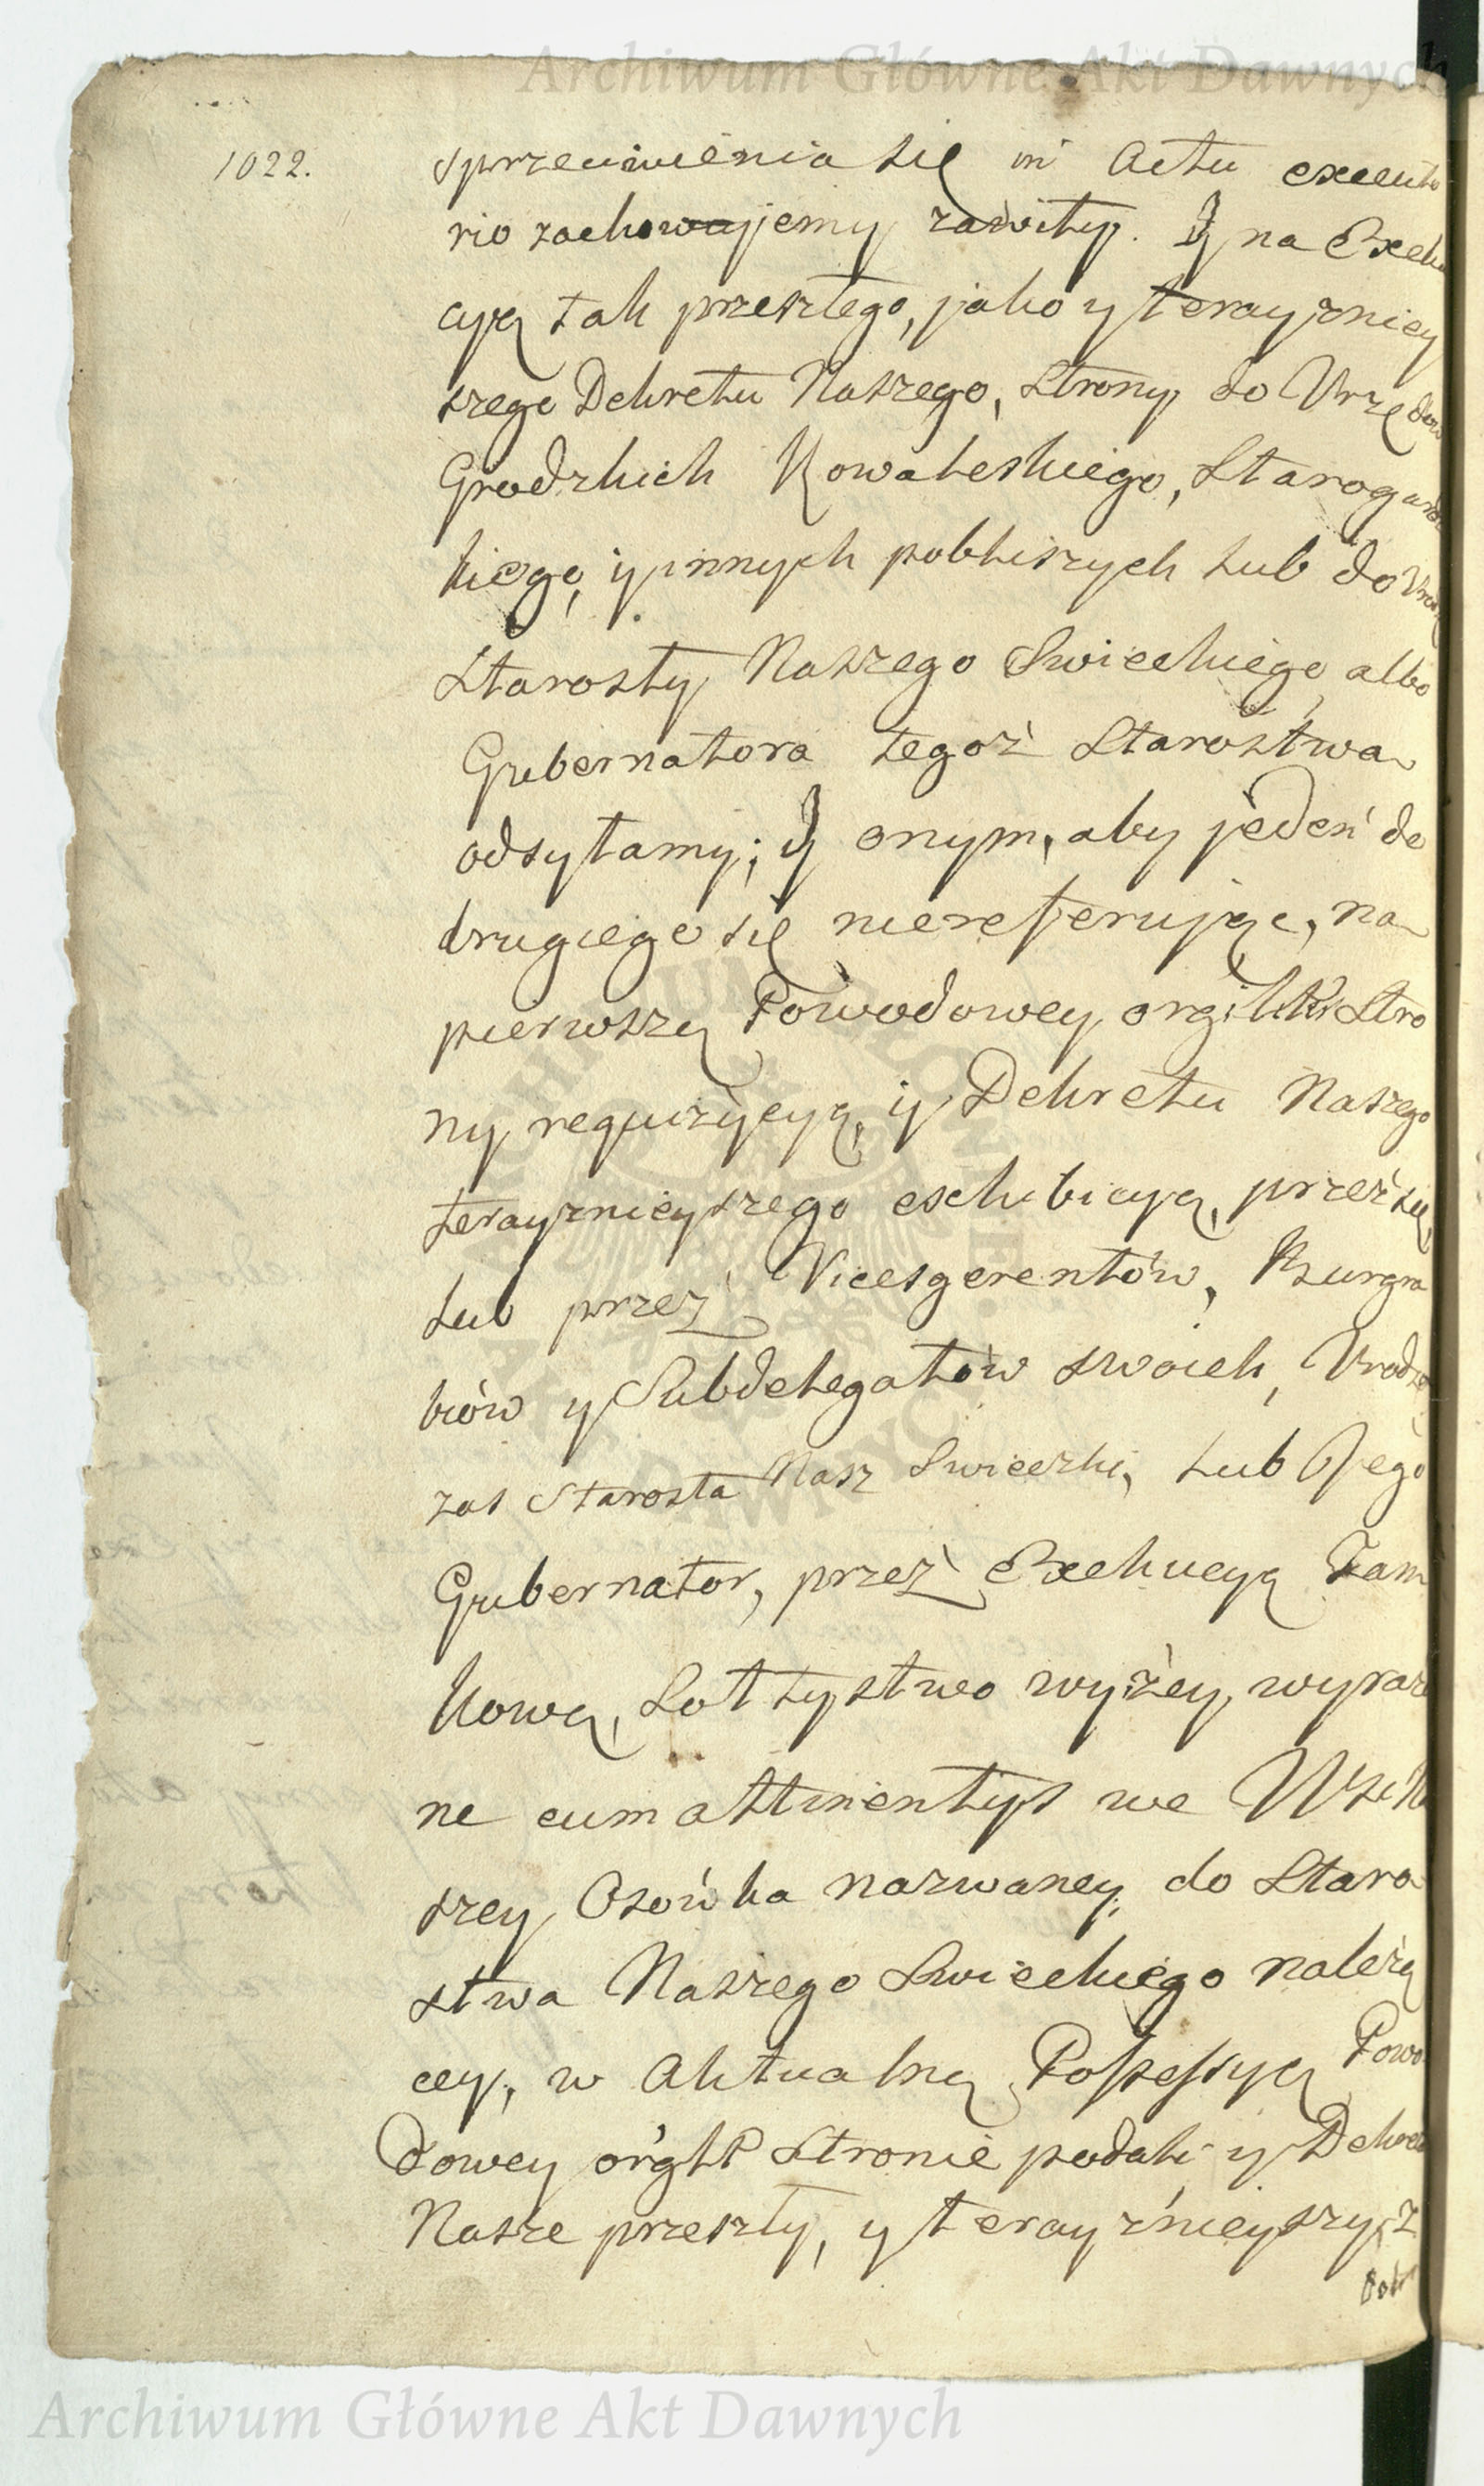 Archiwum Główne Akt Dawnych
1022.
sprzeciwienia się in Actu executo
rio zachowujemy zawity. Y na Exeku
cyą tak przeszłego, jako y terayzniey
szego Dekretu Naszego, Strony do Urzędow
Grodzkich Kowaleskiego, Starogardz
kiego, y innych pobliszych lub do
Starosty Naszego Swieckiego albo
Gubernatora tegoż Starostwa
odsyłamy; Y onym, aby jeden do
drugiego się niereferując, na
pierwszą Powodowey Stro
ny requizycyą, y Dekretu Naszego
terayznieyszego exhibicyą, przez się
lub przez Vicesgerentów, Burgra
biów y Subdelegatów swoich, Urodzo
zas Starosta Nasz Swieczki, lub Jego
Gubernator, przez Exekucyą Tam
kową, Sołtystwo wyżey wyraż
ne cum attinentys we Wsi N
szey Osówka nazwaney, do Staro
stwa Naszego Swieckiego należą
cey, w Aktualną Possessyą Powo
dowey Stronie podali y Dekret
Nasze przeszły, y terayźnieyszy, z
ARCHIWUM GŁÓWNE AKT DAWNYCH
Archiwum Główne Akt Dawnych